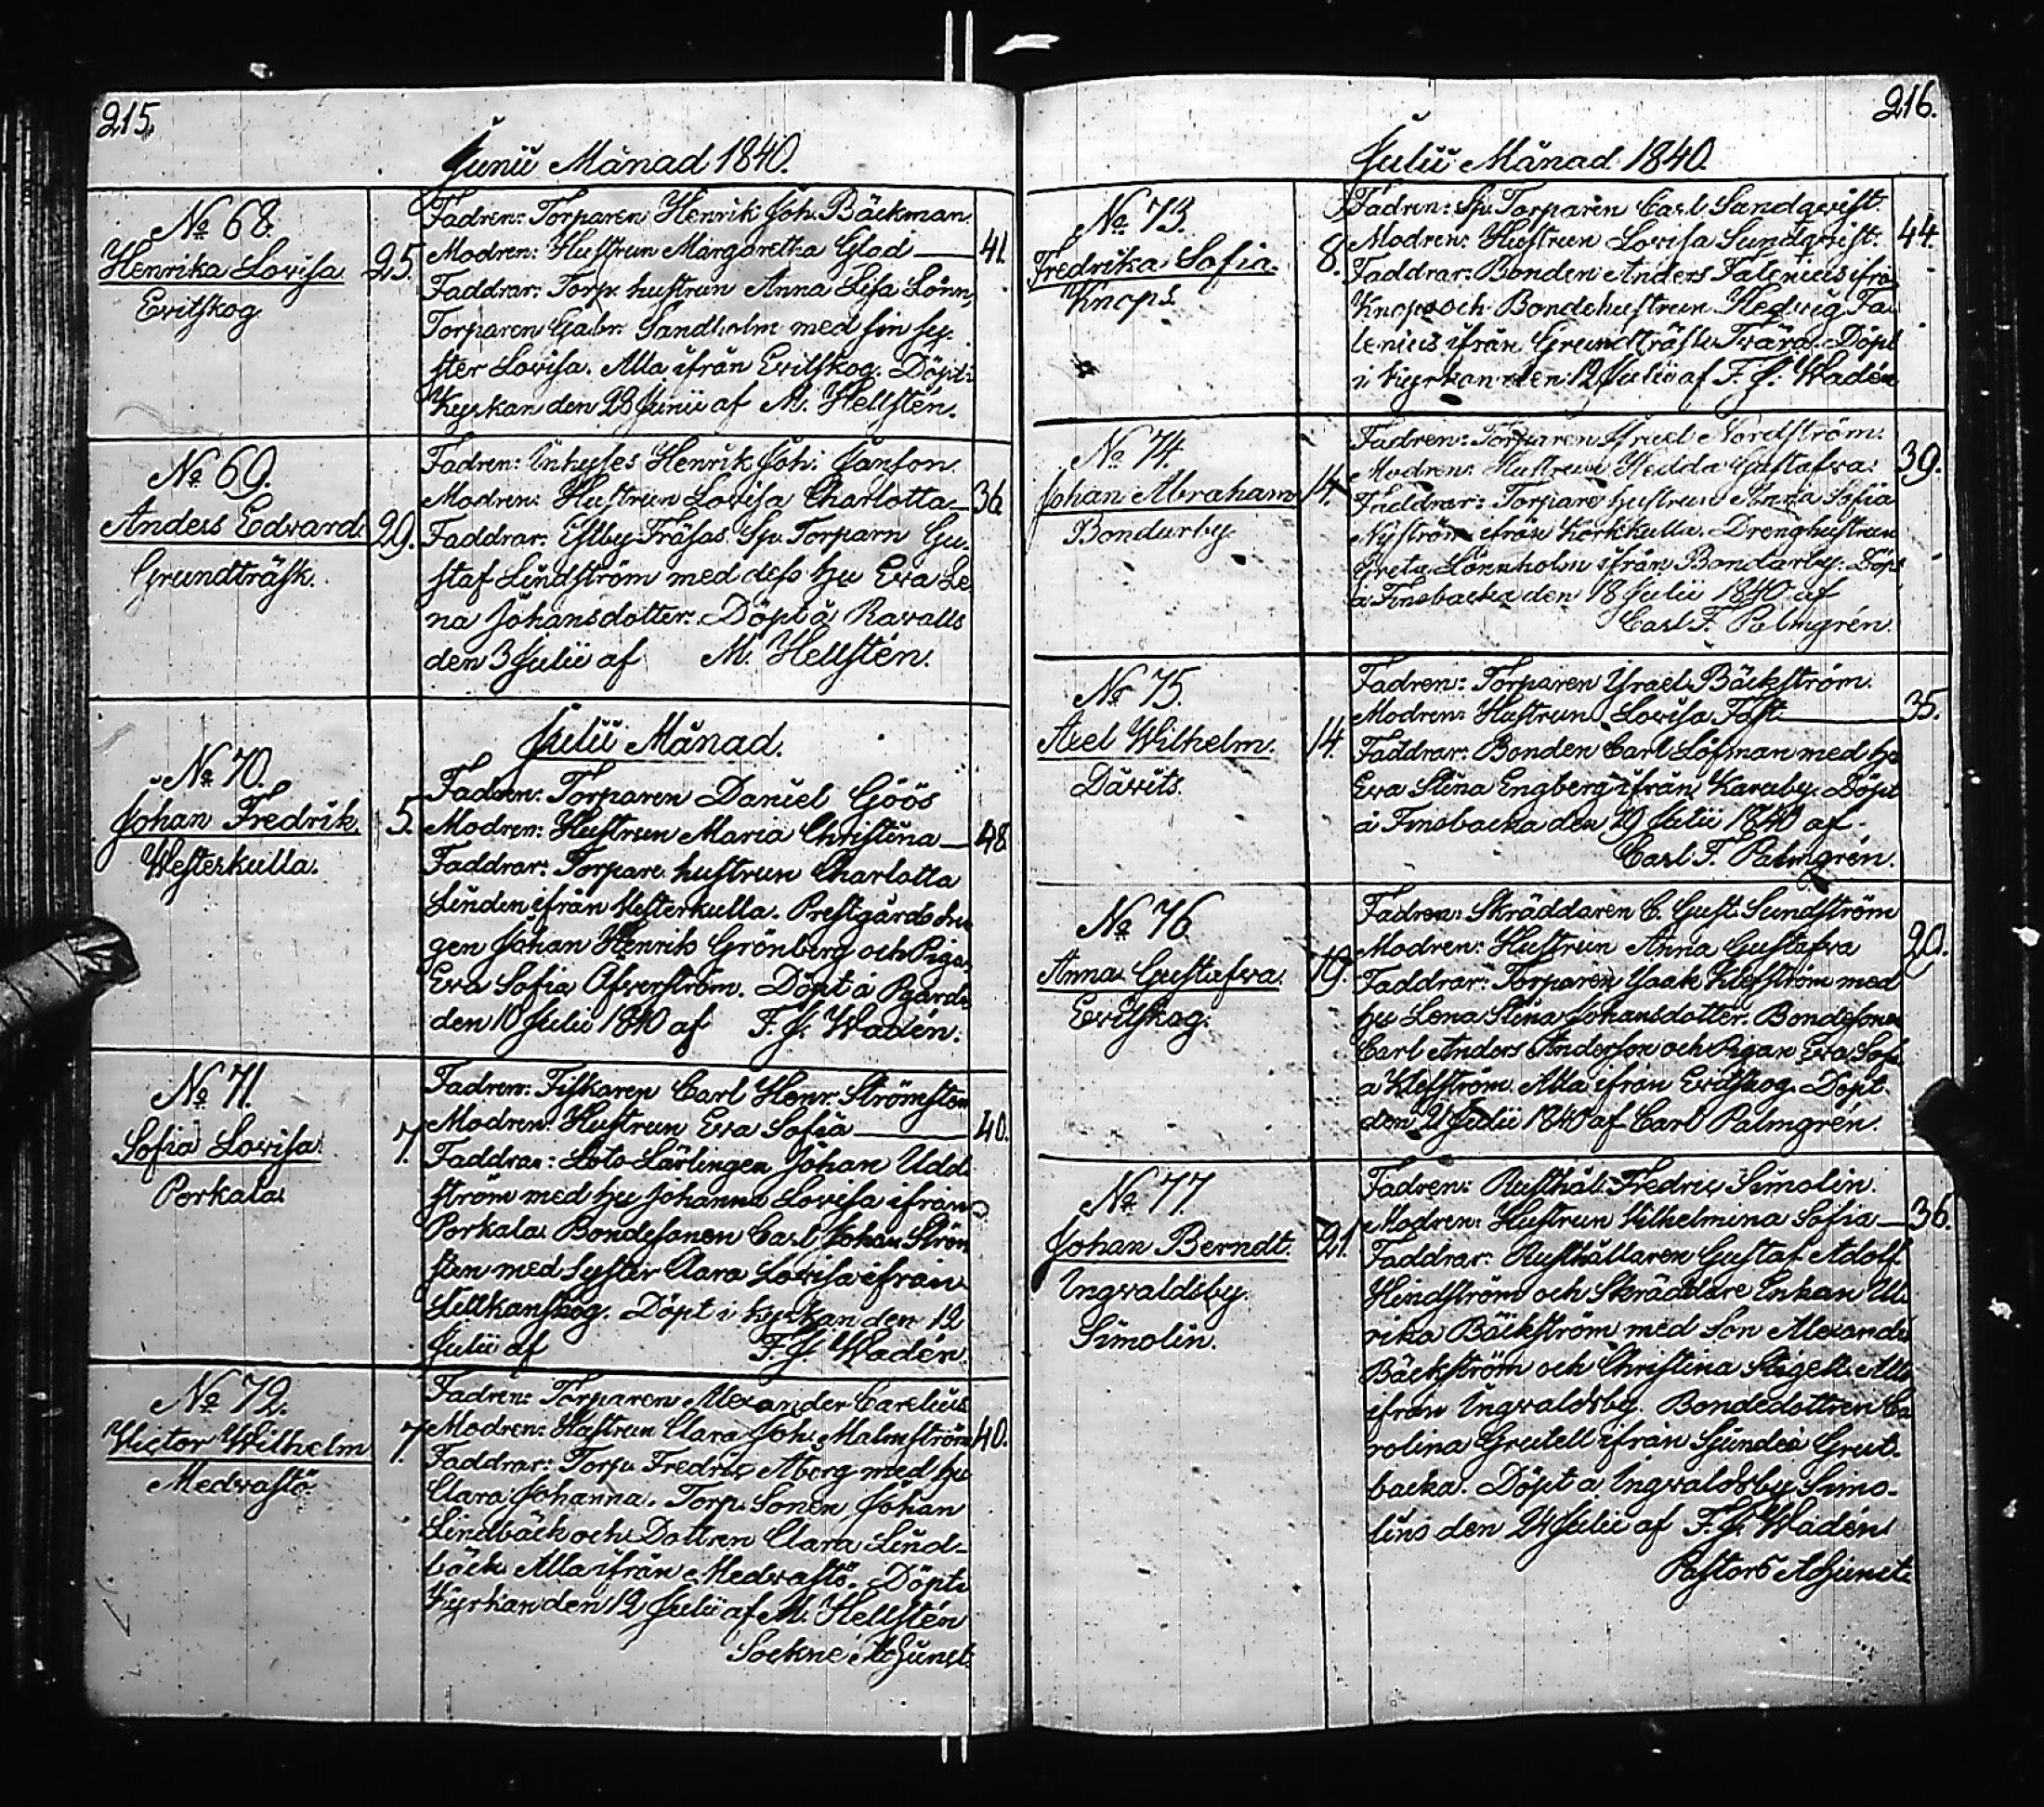 215.
Junii Månad 1840.
No 68.
Henrika Lovisa
Evitskog
25.
Fadren: Torparen Henrik Joh. Bäckman
Modren: Hustrun Margaretha Glad
41
Faddrar: Torp. hustrun Anna Lisa Lönn,
Torparen Gabr. Sandholm med sin sy-
ster Lovisa. Alla ifrån Evitskog. Döpt i
Kyrkan den 28 Junii af M. Hellstén.
No 69.
Anders Edvard.
Grundträsk.
29.
Fadren: Inhyses Henrik Joh: Janson
Modren: Hustrun Lovisa Charlotta
36
Faddrar: Esby Fräsas Sp. Torparn Gu-
staf Lindström med dess hu Eva Le
na Johansdotter. Döpt å Ravalls
den 3 Julii af M. Hellstén.
Julii Månad.
No 70.
Johan Fredrik.
Westerkulla.
5.
Fadren: Torparen Daniel Göös
Modren: Hustrun Maria Christina
48
Faddrar: Torpare hustrun Charlotta
Linden ifrån Westerkulla. Prestgårds dren
gen Johan Henrik Grönberg och Piga
Eva Sofia Öfverström. Döpt å Pgårds
den 10 Julii 1840 af F. J. Wadén.
No 71.
Sofia Lovisa.
Porkala
7.
Fadren: Fiskaren Carl Henr. Strömsten
Modren: Hustrun Eva Sofia
40.
Faddrar: Lots Lärlingen Johan Udd
ström med hu Johanna Lovisa ifrån
Porkala. Bondesonen Carl Johan Ström
sten med Syster Clara Lovisa ifrån
Döpt i kyrkan den 12
Julii af F. J. Wadén.
No 72.
Victor Wilhelm
Medvastö
7.
Fadren: Torparen Alexander Carelius
Modren: Hustrun Clara Joh: Malmström
40.
Faddrar: Torp. Fredric Åberg med hu
Clara Johanna. Torp. Sonen Johan
Lindbäck och Dottren Clara Lind-
bäck Alla ifrån Medvastö. Döpt i
Kyrkan den 12 Julii af M. Hellstén
Sockne Adjunct.
216.
Julii Månad 1840.
No 73.
Fredrika Sofia.
Knops
8.
Fadren: Sp. Torparen Carl Sandqvist.
Modren: Hustrun Lovisa Sundqvist.
44.
Faddrar: Bonden Anders Falenius ifrå
Knops och Bondehustrun Hedvig Fa
lenius ifrån Grundträsk Tvära. Döpt
i Kyrkan den 12 Julii af F. J. Wadén
No 74.
Johan Abraham
Bondarby
14.
Fadren: Torparen Israel Nordström.
Modren: Hustrun Hedda Gustafva.
39.
Faddrar: Torpare hustrun Anna Sofia
Nyström ifrån Korkkulla. Drenghustrun
Greta Lönnholm ifrån Bondarby. Döpt
å Finsbacka den 18 Julii 1840 af
Carl F. Palmgrén.
No 75.
Axel Wilhelm.
Dävits
14.
Fadren: Torparen Ysrael Bäckström.
Modren: Hustrun Lovisa Fast
35.
Faddrar: Bonden Carl Löfman med hu
Eva Stina Engberg ifrån Karuby. Döpt
å Finsbacka den 19 Julii 1840 af
Carl F. Palmgrén.
No 76
Anna Gustafva.
Evitskog.
19.
Fadren: Skräddaren C. Gust. Sundström
Modren: Hustrun Anna Gustafva
20.
Faddrar: Torparen Ysaak Klefström med
hu Lena Stina Johansdotter. Bondesonen
Carl Anders Anderson och Pigan Eva Sofi
a Klefström Alla ifrån Evitskog. Döpt.
den 21 Julii 1840 af Carl Palmgrén.
No 77.
Johan Berndt.
Ingvaldsby.
Simolin.
21.
Fadren: Rusthål. Fredric Simolin.
Modren: Hustrun Vilhelmina Sofia
36.
Faddrar: Rusthållaren Gustaf Adolf
Hindström och Skräddare Enkan Ul-
rika Bäckström med Son Alexand.
Bäckström och Christina Stigell. Alla
ifrån Ingvaldsby. Bondedottren Ca
rolina Grutell ifrån Sjundeå Grut-
backa. Döpt å Ingvaldsby Simo-
lins den 24 Julii af F. J. Wadén
Pastors Adjunct.